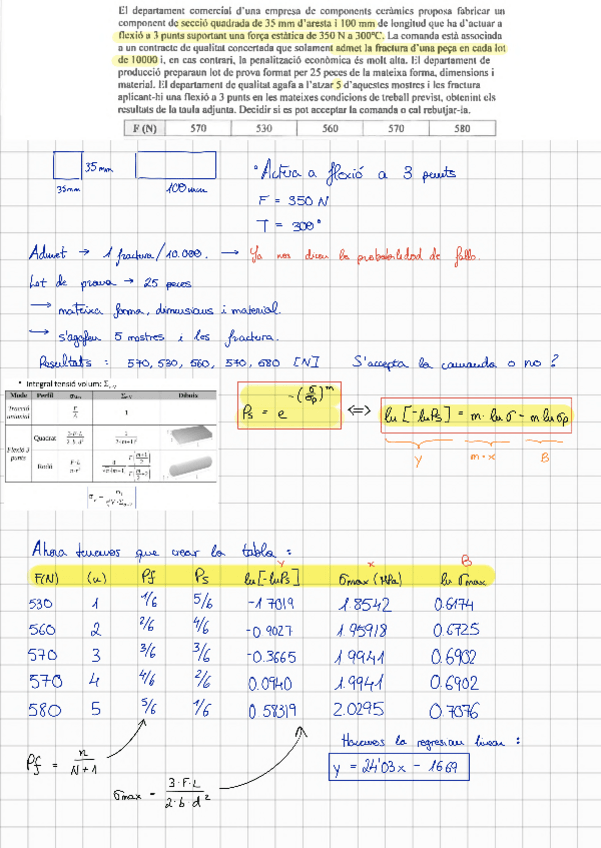 El departament comercial d'una empresa de components ceràmics proposa fabricar un
component de secció quadrada de 35 mm d'aresta i 100 mm de longitud que ha d'actuar a
flexió a 3 punts suportant una força estàtica de 350 N a 300ºC. La comanda està associada
a un contracte de qualitat concertada que solament admet la fractura d'una peça en cada lot
de 10000 i, en cas contrari, la penalització econòmica és molt alta. El departament de
producció preparaun lot de prova format per 25 peces de la mateixa forma, dimensions i
material. El departament de qualitat agafa a l'atzar 5 d'aquestes mostres i les fractura
aplicant-hi una flexió a 3 punts en les mateixes condicions de treball previst, obtenint els
resultats de la taula adjunta. Decidir si es pot acceptar la comanda o cal rebutjar-la.
F (N) 570 530 560 570 580
35 mm
35mm 100 mm
• Actua a flexió a 3 punts
F = 350 N
T = 300°
Admet → 1 fractura/10.000. → Ya nos dicen la probabilidad de fallo.
Lot de prova → 25 peces
→ mateixa forma, dimensions i material.
→ s'agafen 5 mostres i les fractura.
Resultats : 570, 530, 560, 570, 580 [N] S'accepta la comanda o no ?
• Integral tensió volum: Σ
Mode Perfil Dibuix
Tracció
1
Flexió 3
punts
Quadrat
Rodó
Ps = e^-(σ/σp)^m ⟺ ln [-lnPs] = m · ln σ - m ln σp
y m·x B
Ahora tenemos que crear la tabla :
y x B
F(N) (n) Pf Ps ln[-lnPs] σmax (MPa) ln σmax
530 1 1/6 5/6 -1.7019 1.8542 0.6174
560 2 2/6 4/6 -0.9027 1.95918 0.6725
570 3 3/6 3/6 -0.3665 1.9941 0.6902
570 4 4/6 2/6 0.0940 1.9941 0.6902
580 5 5/6 1/6 0.58319 2.0295 0.7076
Hacemos la regresion linear :
y = 24'03x - 16.69
Pf = n/N+1
σmax = 3·F·L/2·b·d²